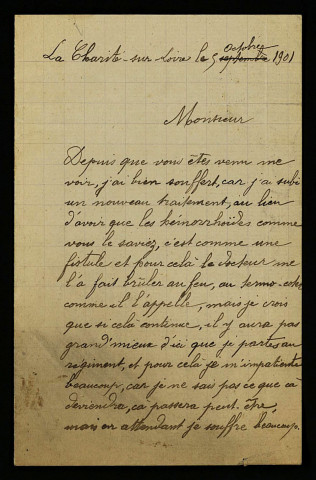 La Charité-sur-Loire le 5 septembre octobre 1901
Monsieur
Depuis que vous êtes venu me
voir, j'ai bien souffert, car j'ai subi
un nouveau traitement, au lieu
d'avoir que les hémorrhoïdes comme
vous le saviez, c'est comme une
fistule et pour celà le docteur me
l'a fait brûler au feu, au termo-
comme il l'appelle, mais je crois
que si celà continue, il y aura pas
grand'mieux d'ici que je partes au
régiment, et pour celà je m'impatiente
beaucoup, car je ne sais pas ce que ça
deviendra, ça passera peut-être,
mais en attendant je souffre beaucoup.